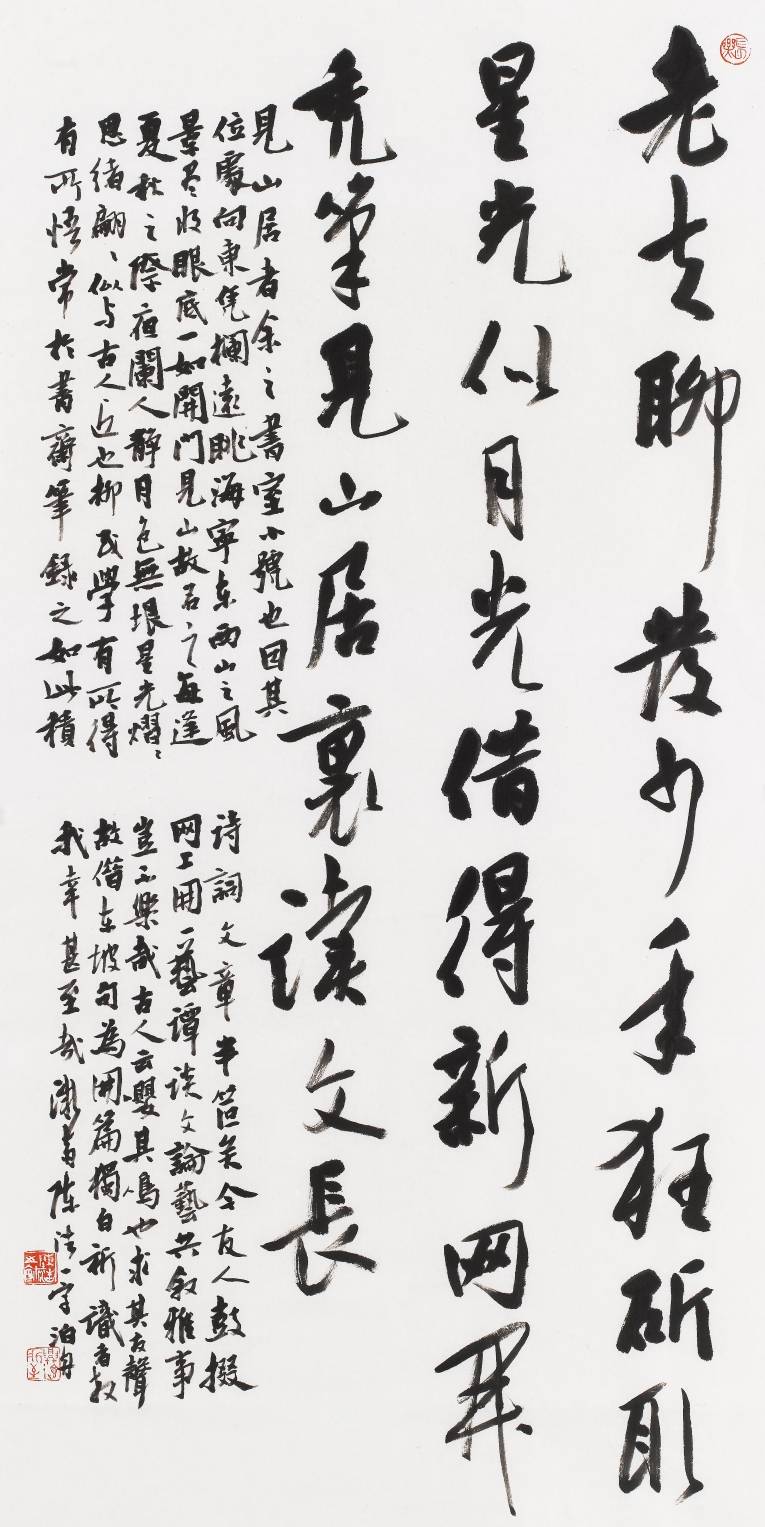 老夫聊發少年狂斫取
星光似月光借得新网開
秃筆見山居裏谈文長
見山居者余之書室小號也因其
位處向東凭欄遠眺海寧东西山之風
景尽收眼底一如開門見山故名之每逢
夏秋之際夜闌人静月色無垠星光熠々
思绪翩々似与古人近也抑或學有所得
有所悟常於書齋筆録之如此積
诗詞文章半笸矣今友人鼓掇
网上開一藝譚谈文論藝共叙雅事
豈不樂哉古人云嚶其鳴也求其友聲
故借东坡句為開篇獨白祈識者教
我幸甚至哉陈浩一字泊舟